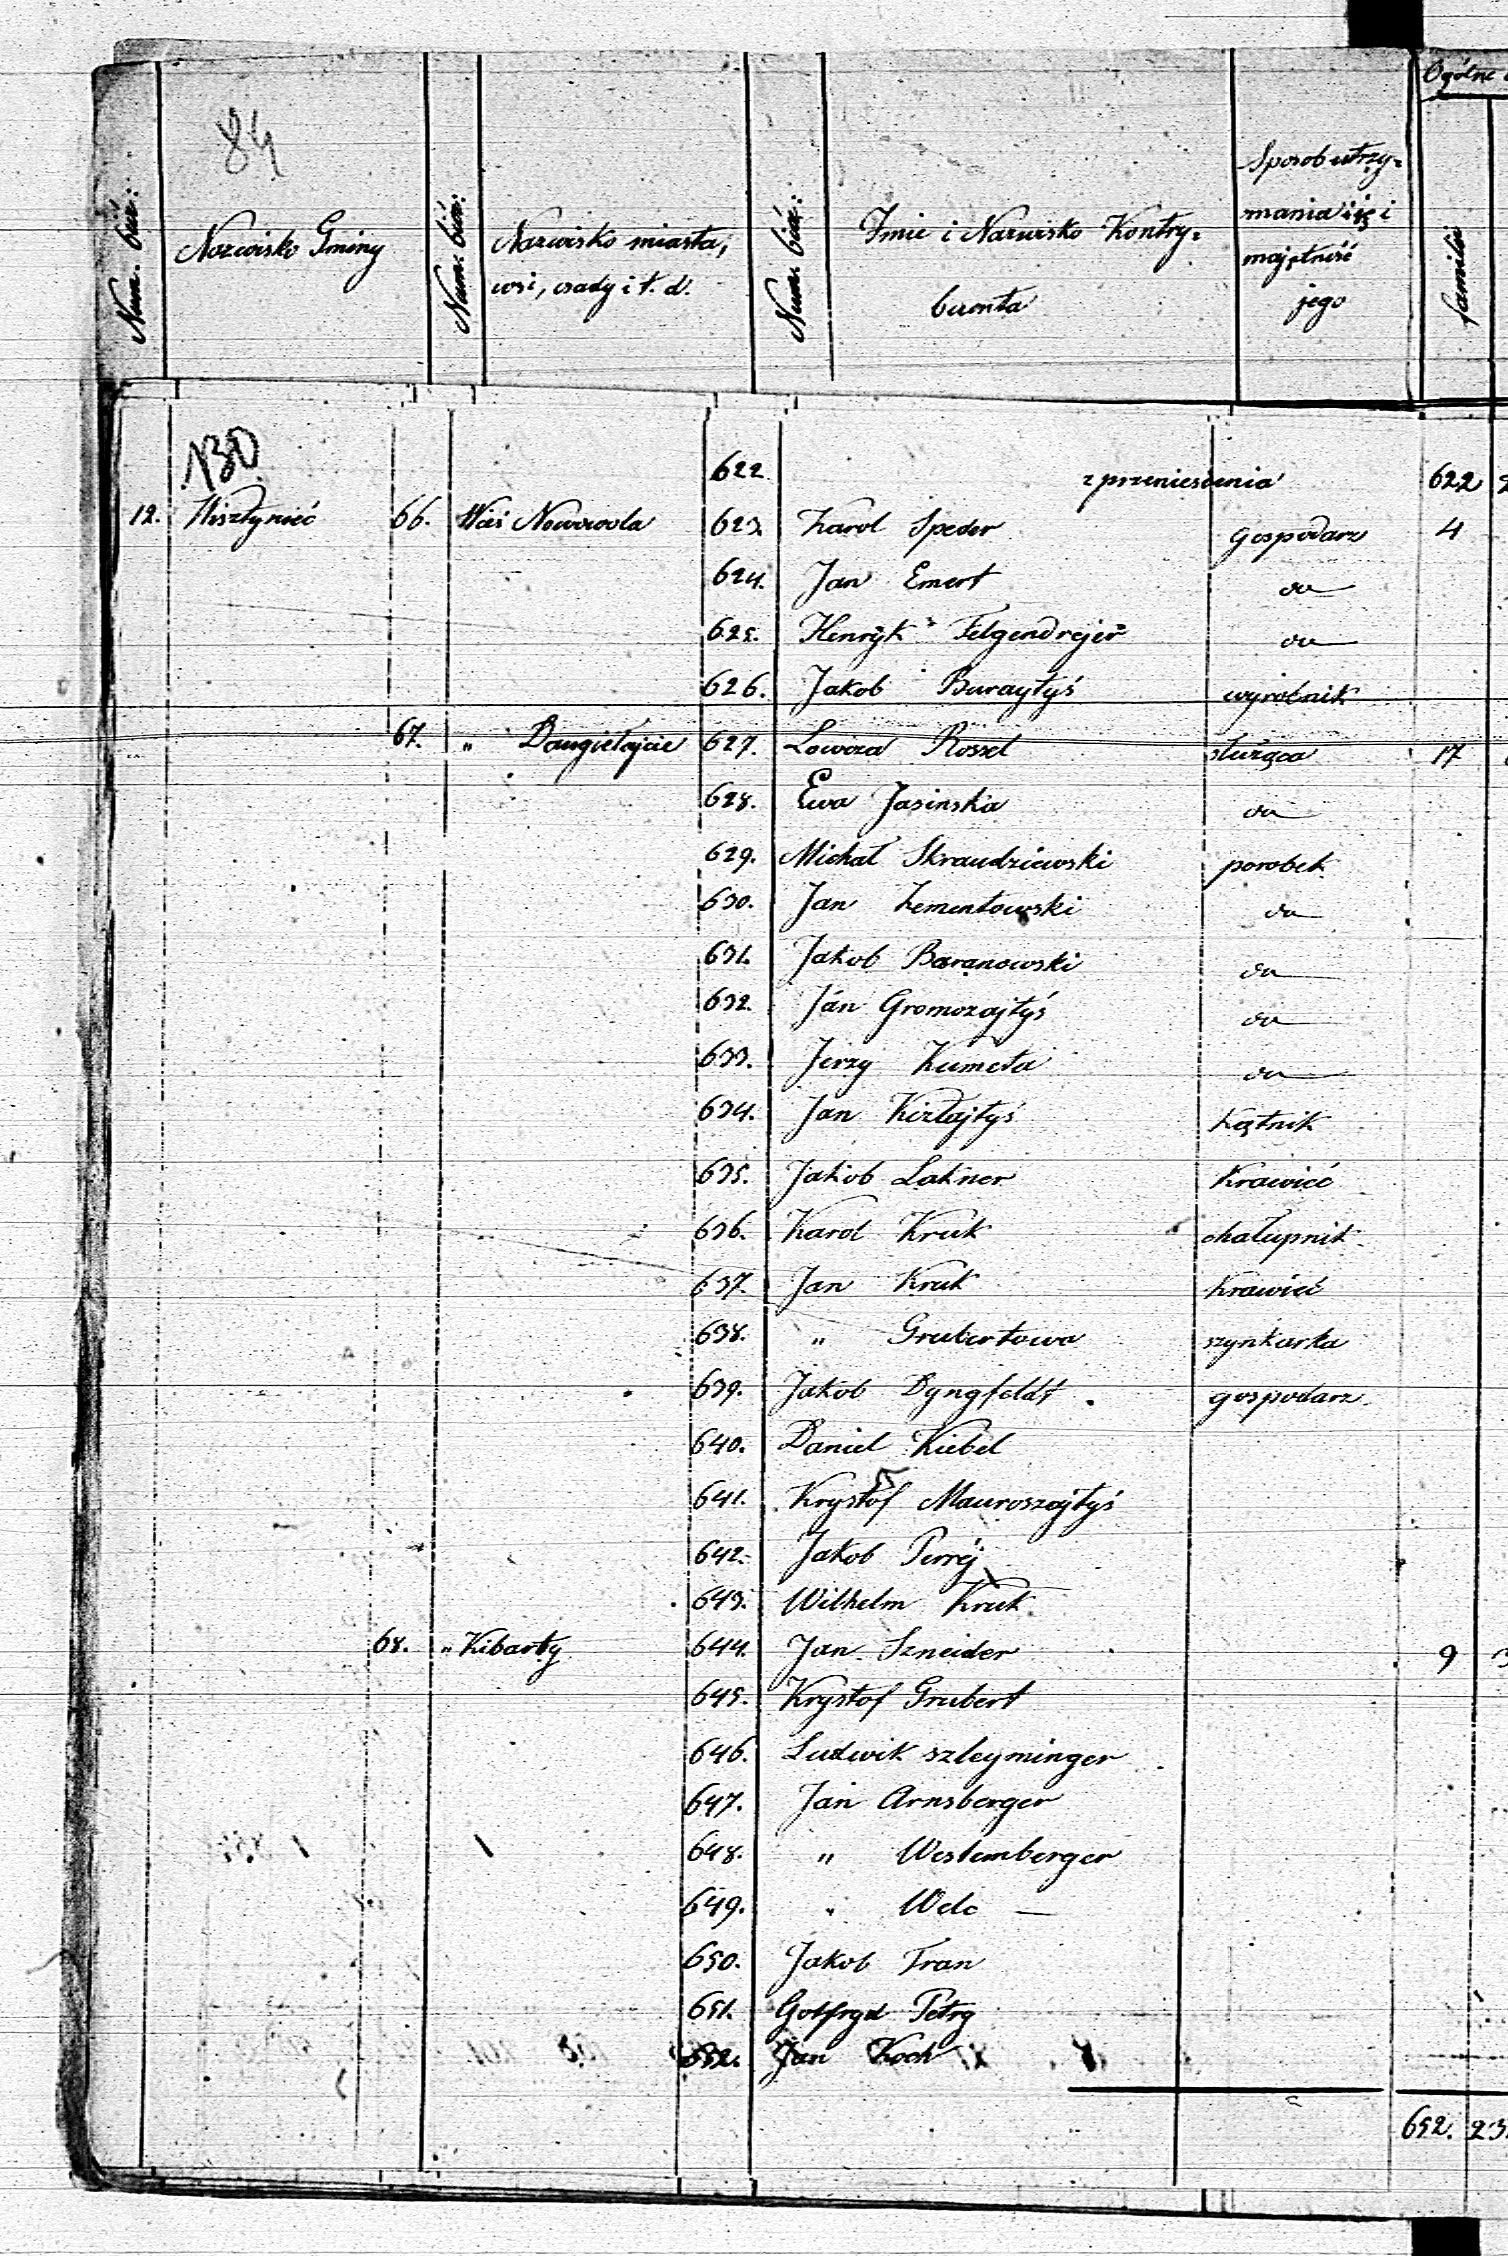 Ogólne
84
Num. bież:
Nazwisko Gminy
Num. bież:
Nazwisko miasta,
wsi, osady i t. d.
Num. bież:
Imie i Nazwisko Kontry-
buenta
Sposob utrzy-
mania się i
majętność
jego
familii
130
622 z przeniesienia 622
12. Wisztyniéc 66. Wieś Nowawola 623. Karol Speder gospodarz 4
624. Jan Emert do
625. Henryk Felgendrejer do
626. Jakob Buraytyś wyrobnik
67. " Daugiełajcie 627. Lowiza Rossel służąca 17
628. Ewa Jasinska do
629. Michał Skraudziewski parobek
630. Jan Zementowski do
631. Jakob Baranowski do
632. Jan Gromozajtyś do
633. Jerzy Kumeta do
634. Jan Kizłajtyś kątnik
635. Jakob Lakner Krawiéc
636. Karol Kruk chałupnik
637. Jan Kruk Krawiéc
638. " Grubertowa szynkarka
639. Jakob Dyngfeldt gospodarz
640. Daniel Kiebel
641. Krystof Mauroszajtyś
642. Jakob Perréj
643. Wilhelm Kruk
68. " Kibarty 644. Jan Szneider 9
645. Krystof Grubert
646. Ludwik szleyminger
647. Jan Arnsberger
648. " Westemberger
649. " Welc —
650. Jakob Fran
651. Gotfryd Petry
652. Jan Koch
652. 23